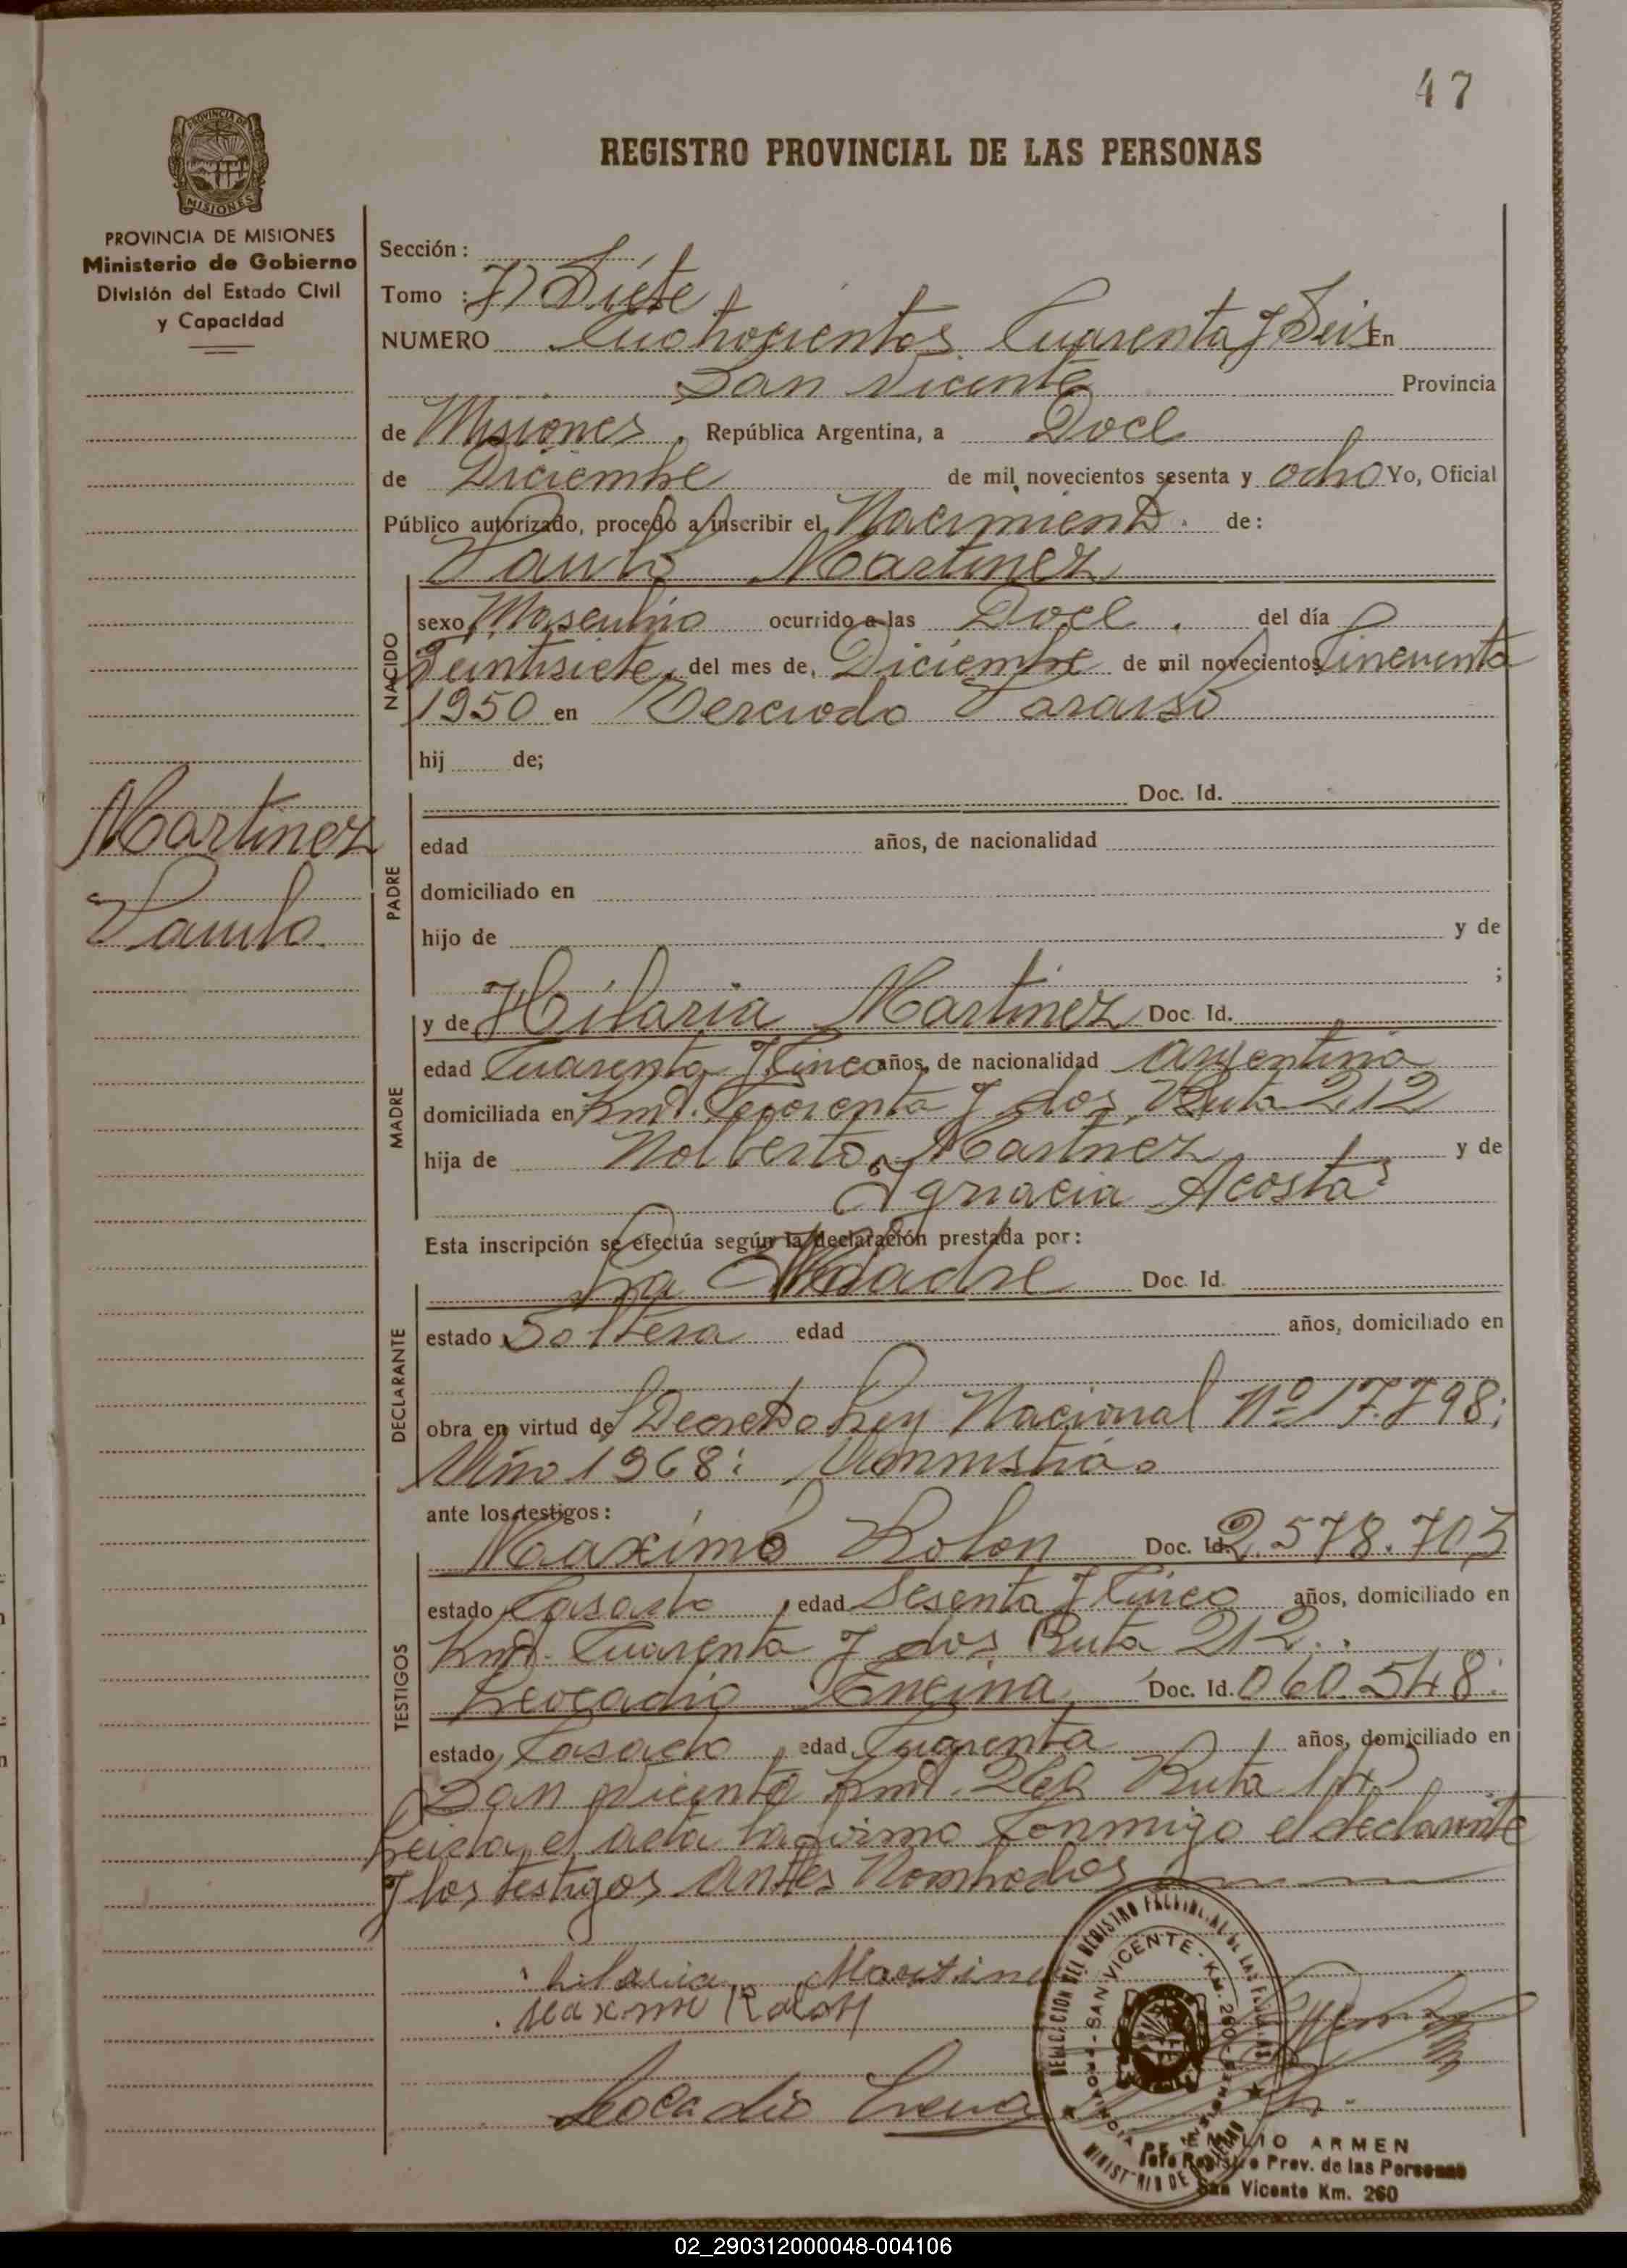 47
REGISTRO PROVINCIAL DE LAS PERSONAS
PROVINCIA DE MISIONES
PROVINCIA DE MISIONES
Ministerio de Gobierno
División del Estado Civil
y Capacidad
Martinez
Paulo
Sección :
Tomo : 7) Siete
NUMERO Cuatrocientos Cuarenta y Seis En
San Vicente Provincia
de Misiones, República Argentina, a Doce
de Diciembre de mil novecientos sesenta y ocho Yo, Oficial
Público autorizado, procedo a inscribir el Nacimiento de:
Paulo Martinez
NACIDO
sexo Masculino ocurrido a las Doce. del día
Veintisiete, del mes de Diciembre de mil novecientos Cincuenta
1950 en Paraiso
hij de;
PADRE
Doc. Id.
edad años, de nacionalidad
domiciliado en
hijo de y de
;
MADRE
y de Hilaria Martinez Doc. Id.
edad Cuarenta y Cinco años, de nacionalidad Argentina
domiciliada en Kmt. y dos Ruta 212
hija de Nolberto Martinez y de
Ignacia Acosta
Esta inscripción se efectúa según la declaración prestada por:
DECLARANTE
La Madre Doc. Id.
estado Soltera edad años, domiciliado en
obra en virtud de Decreto Ley Nacional Nº 17.798;
Año 1968:
ante los testigos:
TESTIGOS
Maximo Rolon Doc. Id. 2.578.703
estado Casado, edad Sesenta y Cinco años, domiciliado en
Kmt. Cuarenta y dos Ruta 212.
Leocadio Encina Doc. Id. 060.548
estado Casado, edad Cuarenta años, domiciliado en
San Vicente Kmt. Ruta 14
Leida el acta la firma Conmigo el declarante
y los testigos antes Nombrados
hilaria Martine
maximo Rolon
Leocadio
DELEGACION DEL REGISTRO PROVINCIAL DE LAS PERSONAS
SAN VICENTE - KM. 260
EMILIO ARMEN
Jefe Registro Prov. de las Personas
San Vicente Km. 260
02_290312000048-004106